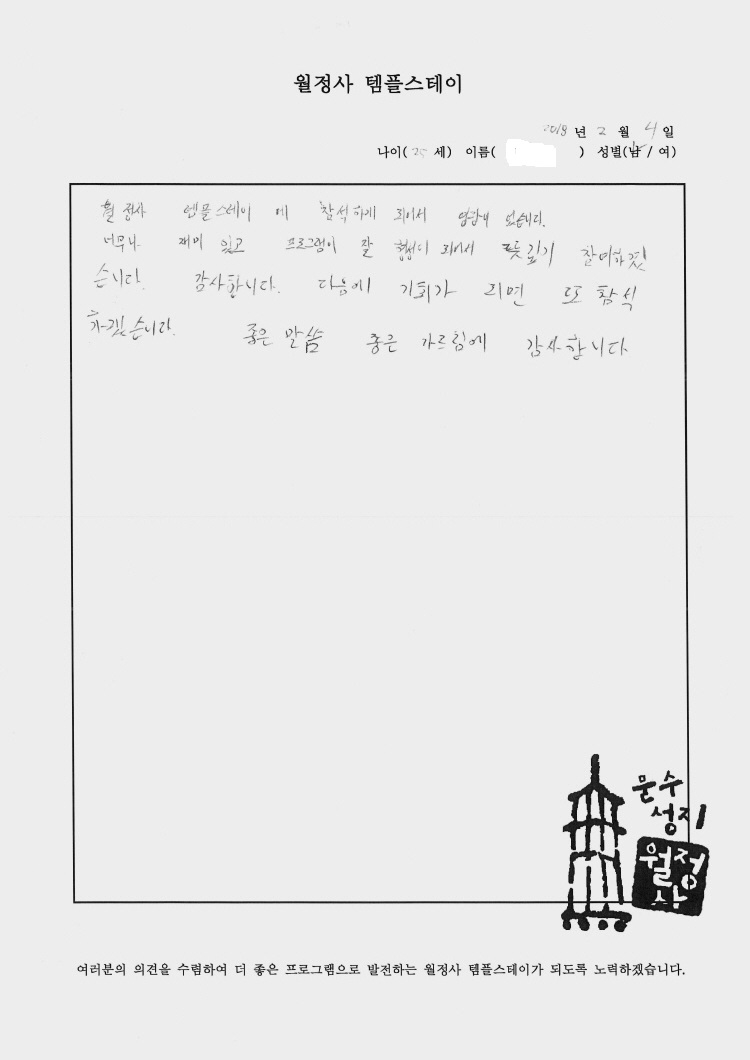 월정사 템플스테이
2018 년 2 월 4 일
나이( 25 세) 이름( ) 성별(남 / 여)
월정사 템플스테이 에 참석하게 되어서
너무나 재미 있고 프로그램이 잘 되어서 뜻깊기 참여하겟
습니다. 감사합니다. 다음에 기회가 되면 또 참석
하겠습니다. 좋은 말씀 좋은 가르침에 감사합니다
문수
성지
월정
사
여러분의 의견을 수렴하여 더 좋은 프로그램으로 발전하는 월정사 템플스테이가 되도록 노력하겠습니다.